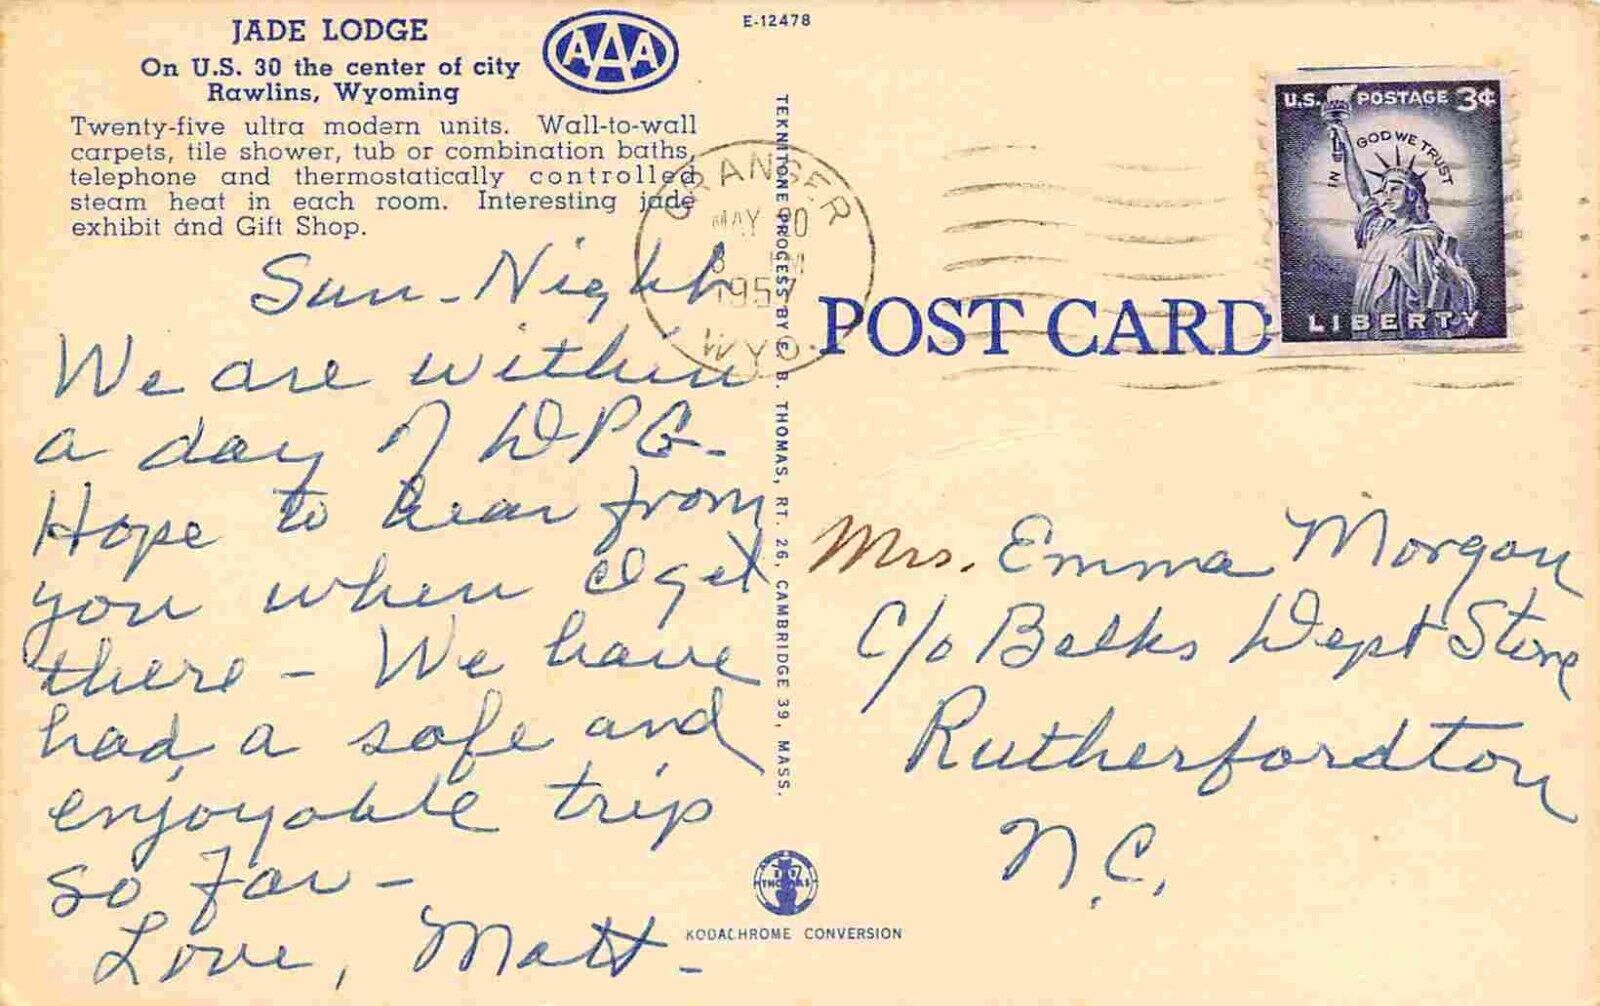 JADE LODGE
On U.S. 30 the center of city
Rawlins, Wyoming
AAA
Twenty-five ultra modern units. Wall-to-wall
carpets, tile shower, tub or combination baths,
telephone and thermostatically controlled
steam heat in each room. Interesting jade
exhibit and Gift Shop.
E-12478
Sun-Night
We are within
a day of DPG-
Hope to hear from
you when I get
there - We have
had a safe and
enjoyable trip
so far -
Love, Matt-
TEKNITONE PROCESS BY E. B. THOMAS, RT. 26, CAMBRIDGE 39, MASS.
GRANGER
MAY 20
PM
1957
WYO.
POST CARD
U.S. POSTAGE 3¢
IN GOD WE TRUST
LIBERTY
Mrs. Emma Morgan
C/o Belks Dept Store
Rutherfordton
N.C.
KODACHROME CONVERSION